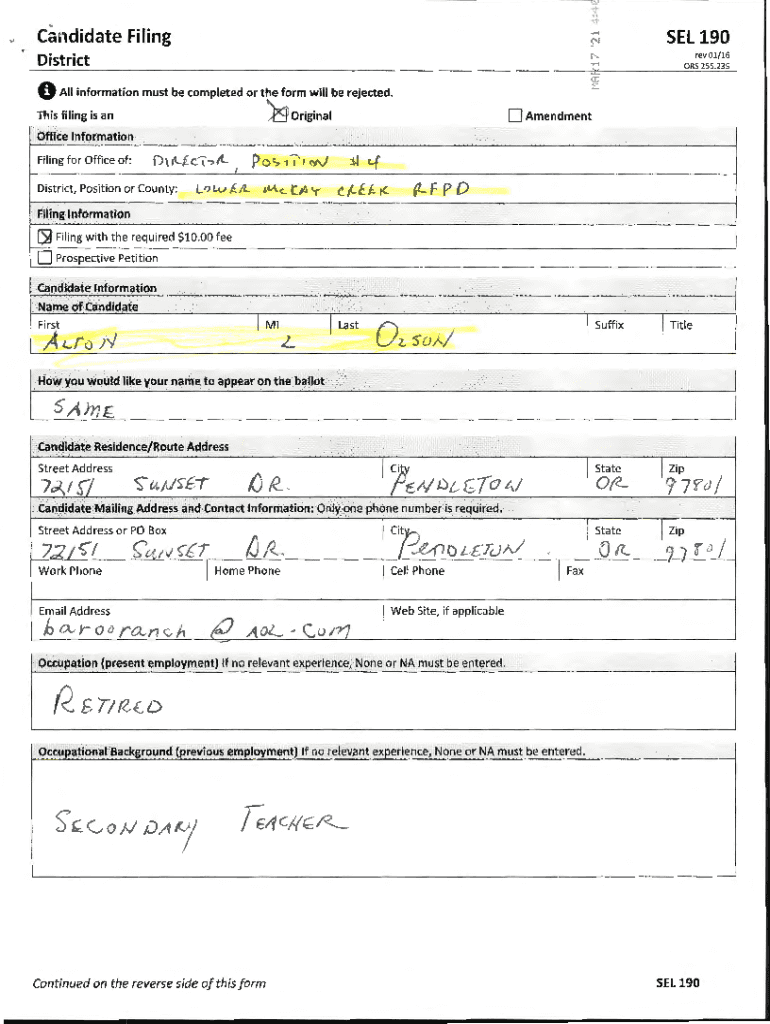 MAR 17 '21
Candidate Filing
SEL 190
District
rev 01/16
ORS 255.235
i All information must be completed or the form will be rejected.
This filing is an Original Amendment
Office Information
Filing for Office of: DIRECTOR, POSITION #4
District, Position or County: LOWER McKAY CREEK RFPD
Filing Information
Filing with the required $10.00 fee
Prospective Petition
Candidate Information
Name of Candidate
First MI Last Suffix Title
ALTON L OLSON
How you would like your name to appear on the ballot
SAME
Candidate Residence/Route Address
Street Address City State Zip
72151 SUNSET DR. PENDLETON OR 97801
Candidate Mailing Address and Contact Information: Only one phone number is required.
Street Address or PO Box City State Zip
72151 SUNSET DR. PENDLETON OR 97801
Work Phone Home Phone Cell Phone Fax
Email Address Web Site, if applicable
barooranch @ AOL.COM
Occupation (present employment) If no relevant experience, None or NA must be entered.
RETIRED
Occupational Background (previous employment) If no relevant experience, None or NA must be entered.
SECONDARY TEACHER
Continued on the reverse side of this form
SEL 190